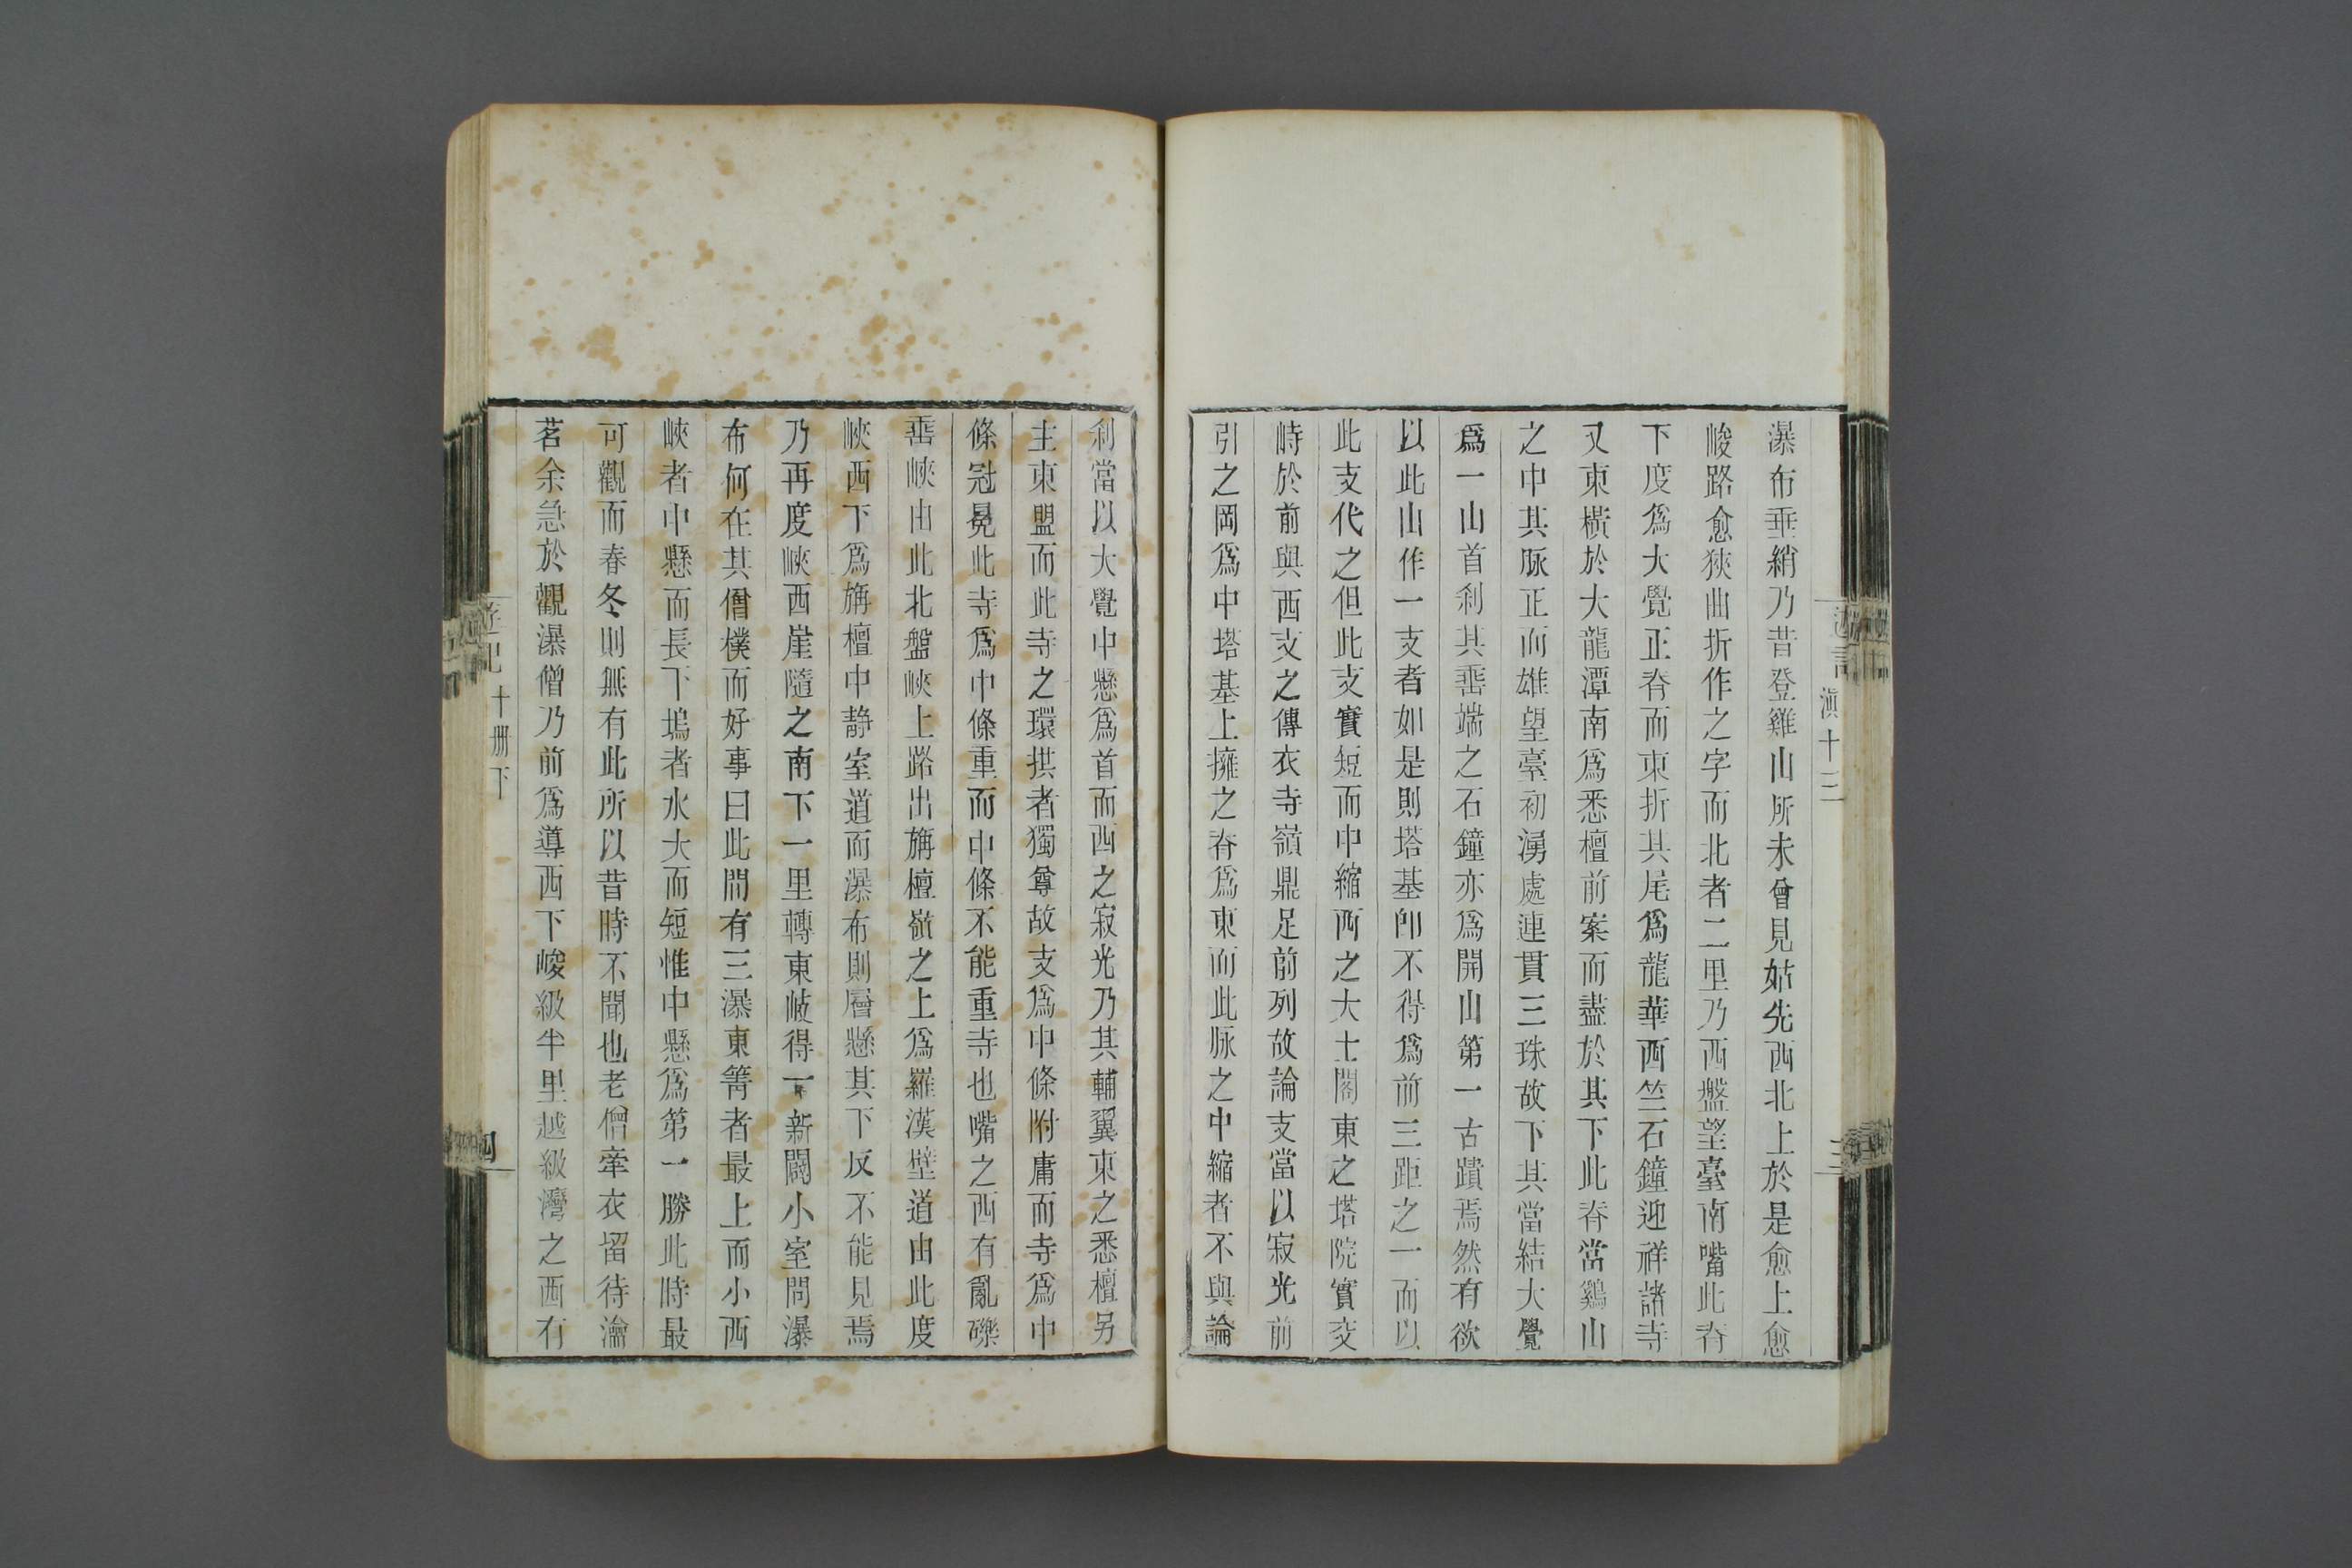 瀑布垂綃乃昔登雞山所未曾見姑先西北上於是愈上愈
峻路愈狹曲折作之字而北者二里乃西盤望臺南嘴此脊
下度爲大覺正脊而東折其尾爲龍華西竺石鐘迎祥諸寺
又東橫於大龍潭南爲悉檀前案而盡於其下此脊當鷄山
之中其脈正而雄望臺初湧處連貫三珠故下其當結大覺
爲一山首刹其垂端之石鐘亦爲開山第一古蹟焉然有欲
以此山作一支者如是則塔基卽不得爲前三距之一而以
此支代之但此支實短而中縮西之大士閣東之塔院實交
峙於前與西支之傳衣寺嶺鼎足前列故論支當以寂光前
引之岡爲中塔基上擁之脊爲東而此脈之中縮者不與論
刹當以大覺中懸爲首而西之寂光乃其輔翼東之悉檀另
主東盟而此寺之環拱者獨尊故支爲中條附庸而寺爲中
條冠冕此寺爲中條重而中條不能重寺也嘴之西有亂礫
垂峽由此北盤峽上路出旃檀嶺之上爲羅漢壁道由此度
峽西下爲旃檀中靜室道而瀑布則層懸其下反不能見焉
乃再度峽西崖隨之南下一里轉東岐得一新闢小室問瀑
布何在其僧樸而好事曰此間有三瀑東箐者最上而小西
峽者中懸而長下塢者水大而短惟中懸爲第一勝此時最
可觀而春冬則無有此所以昔時不聞也老僧牽衣留待瀹
茗余急於觀瀑僧乃前爲導西下峻級半里越級灣之西有
遊記 滇十三
三
遊記 十册下
四